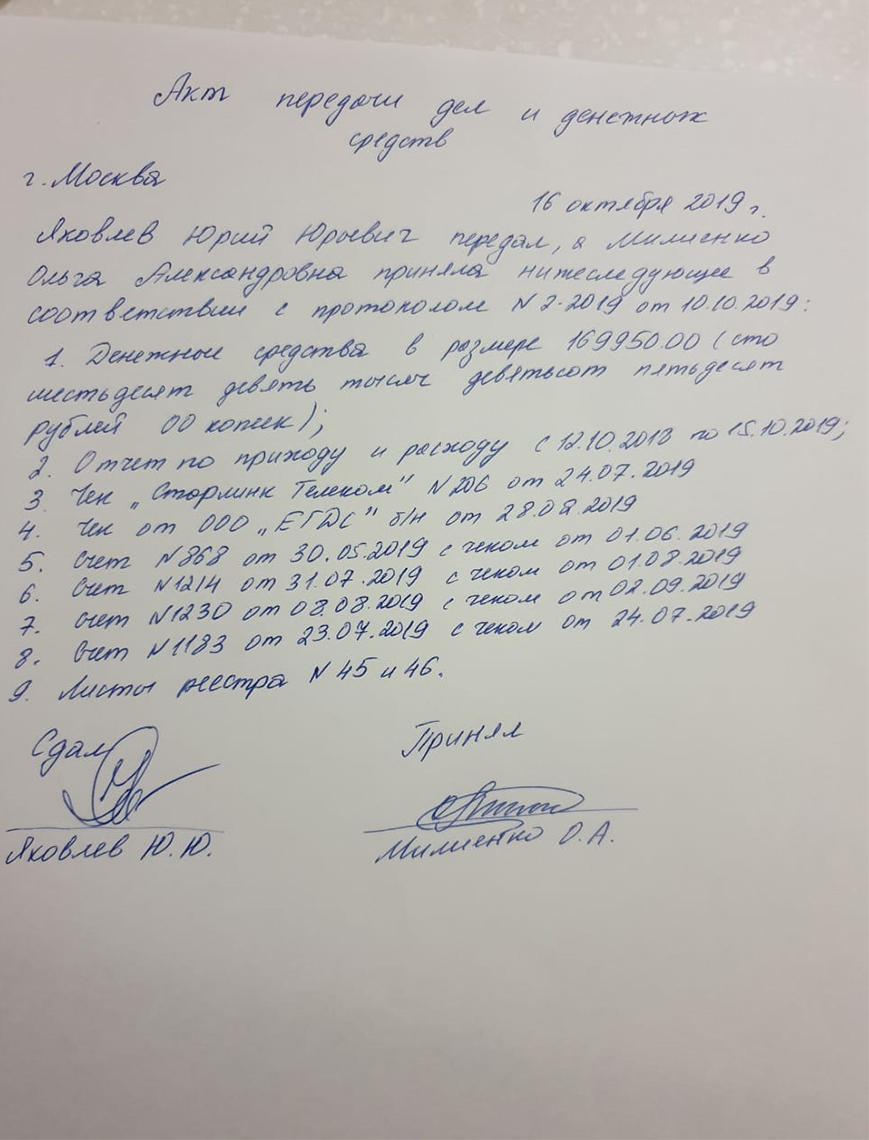 Акт передачи дел и денежных
средств
г. Москва
16 октября 2019 г.
Яковлев Юрий Юрьевич передал, а Милиенко
Ольга Александровна приняла нижеследующее в
соответствии с протоколом N 2-2019 от 10.10.2019:
1. Денежные средства в размере 169950.00 (сто
шестьдесят девять тысяч девятьсот пятьдесят
рублей 00 копеек);
2. Отчет по приходу и расходу с 12.10.2018 по 15.10.2019;
3. Чек „Старлинк Телеком" N206 от 24.07.2019
4. Чек от ООО „ЕГДС" б/н от 28.08.2019
5. Счет N868 от 30.05.2019 с чеком от 01.06.2019
6. Счет N1214 от 31.07.2019 с чеком от 01.08.2019
7. Счет N1230 от 08.08.2019 с чеком от 02.09.2019
8. Счет N1183 от 23.07.2019 с чеком от 24.07.2019
9. Листы реестра N 45 и 46.
Сдал Принял
Яковлев Ю.Ю. Милиенко О.А.